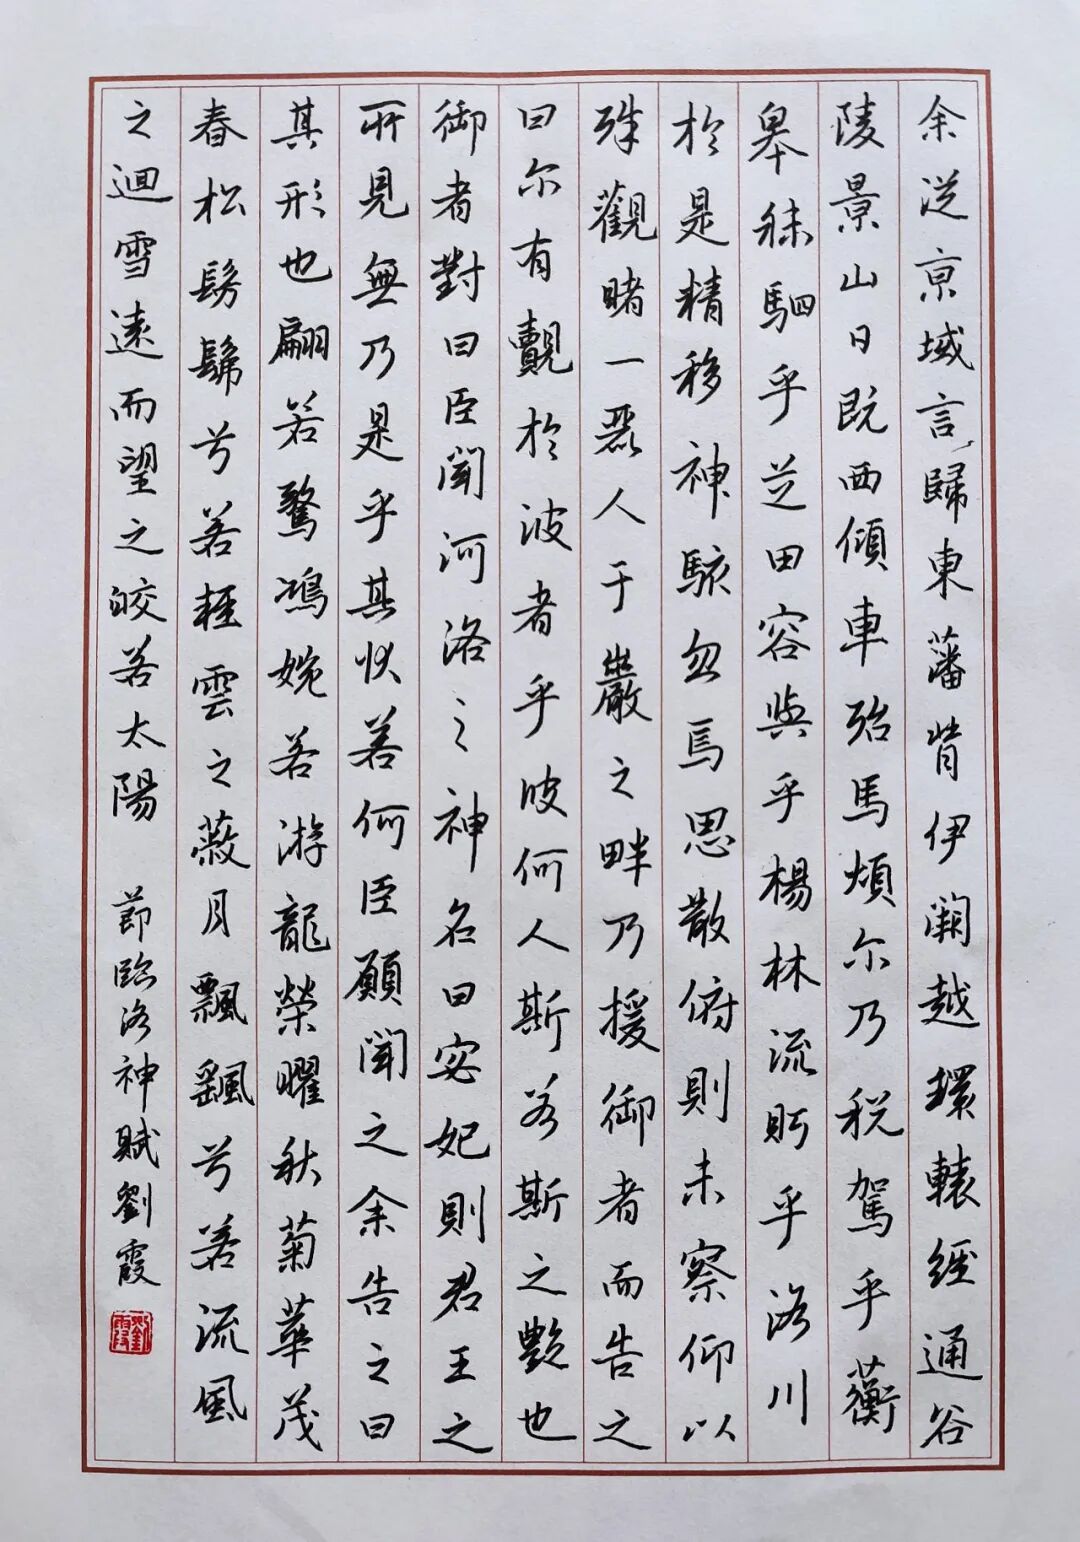 余從京域言歸東藩背伊闕越轘轅經通谷
陵景山日既西傾車殆馬煩尔乃税駕乎蘅
皋秣駟乎芝田容與乎楊林流眄乎洛川
於是精移神駭忽焉思散俯則未察仰以
殊觀睹一麗人于巖之畔乃援御者而告之
曰尔有覿於彼者乎彼何人斯若斯之艷也
御者對曰臣聞河洛之神名曰宓妃則君王之
所見無乃是乎其狀若何臣願聞之余告之曰
其形也翩若驚鴻婉若游龍榮曜秋菊華茂
春松髣髴兮若輕雲之蔽月飄颻兮若流風
之迴雪遠而望之皎若太陽 節臨洛神賦劉霞
劉霞